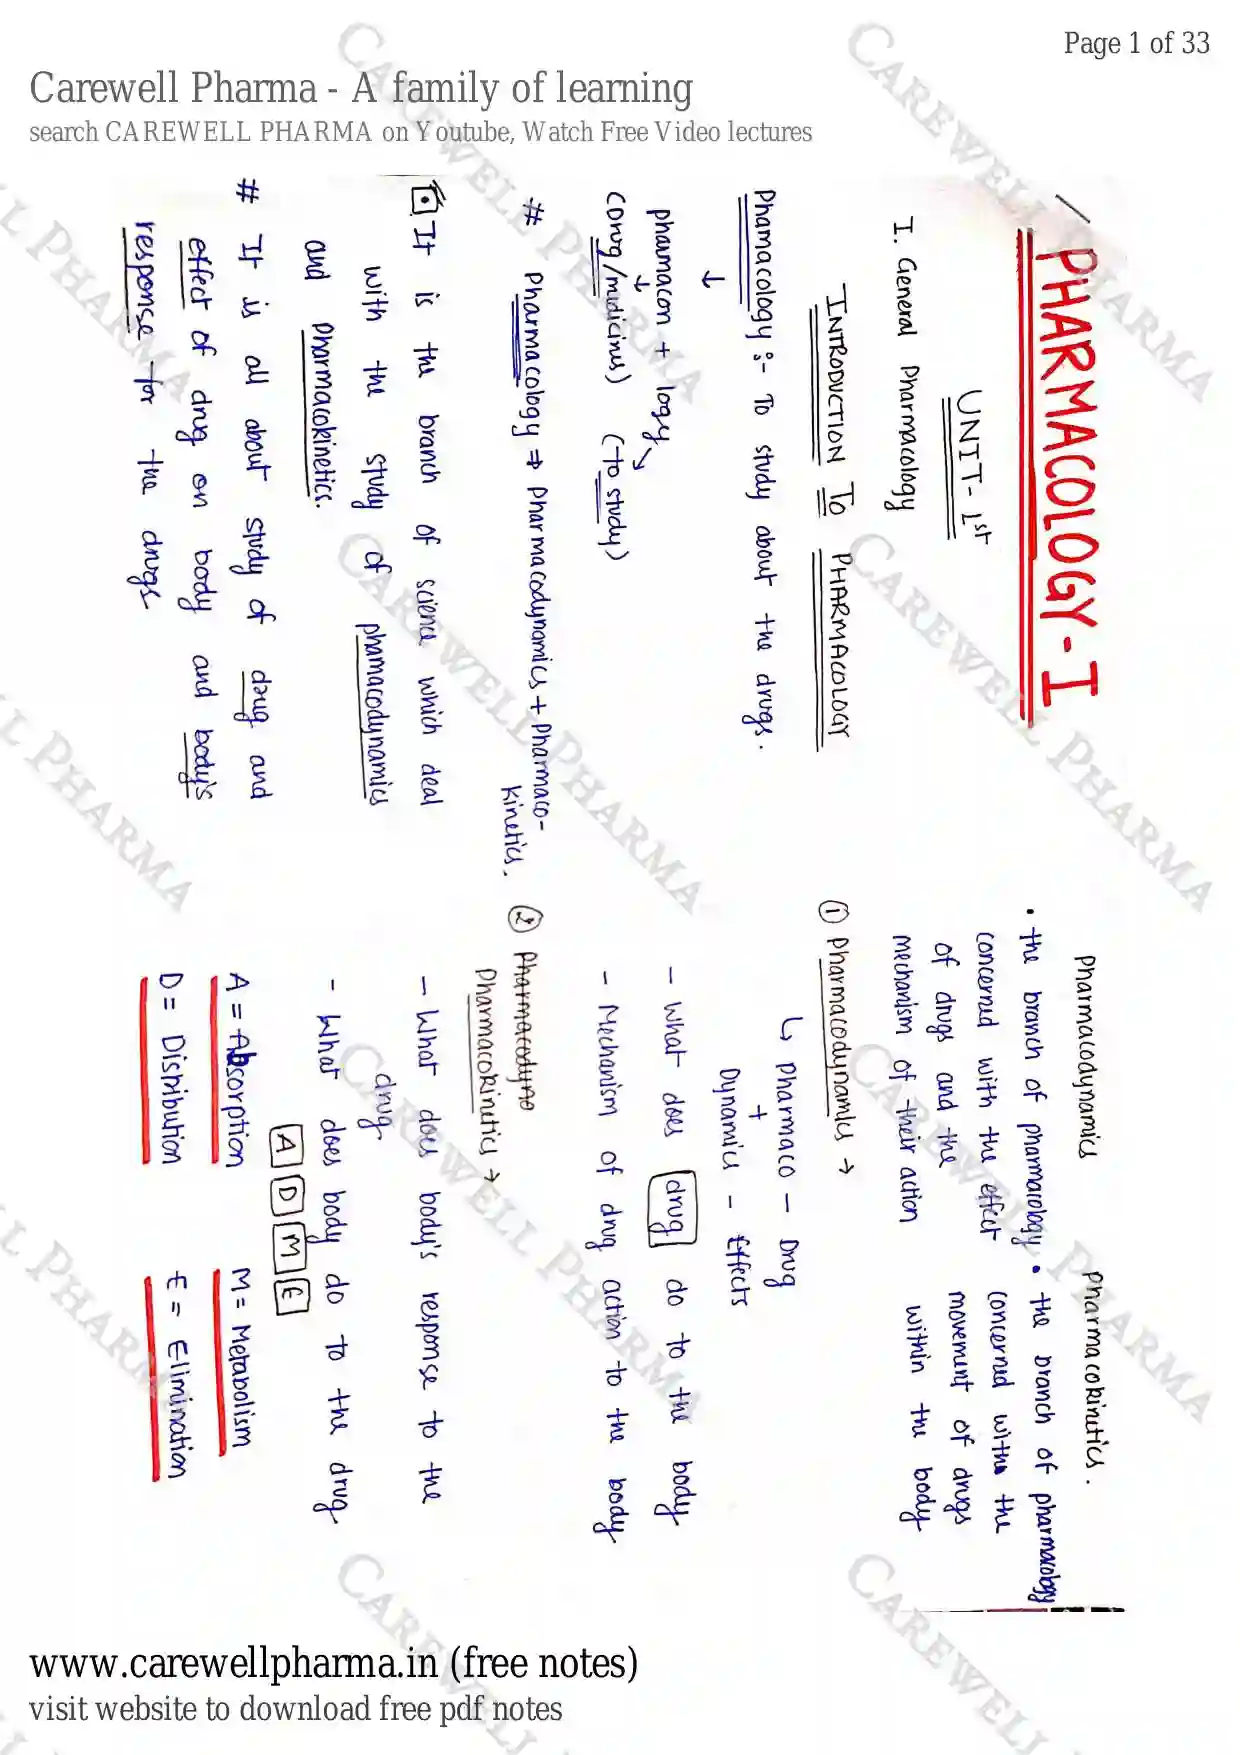 Page 1 of 33
Carewell Pharma - A family of learning
search CAREWELL PHARMA on Youtube, Watch Free Video lectures
PHARMACOLOGY - I
UNIT - 1st
I. General Pharmacology
INTRODUCTION TO PHARMACOLOGY
Phamacology :- To study about the drugs.
↓
phamacon + logy
(Drug/midicines) (to study)
# Pharmacology ⇒ Pharmacodynamics + Pharmaco-
kinetics.
It is the branch of science which deal
with the study of phamacodynamics
and pharmacokinetics.
# It is all about study of drug and
effect of drug on body and body's
response for the drugs.
Pharmacodynamics
• the branch of pharmacology
concerned with the effect
of drugs and the
mechanism of their action
Pharmacokinetics.
• the branch of pharmacology
concerned with the
movement of drugs
within the body
① Pharmacodynamics →
↳ Pharmaco - Drug
+
Dynamics - Effects
- What does drug do to the body
- Mechanism of drug action to the body
② Pharmacodyna
Pharmacokinetics →
- What does body's response to the
drug.
- What does body do to the drug.
A D M E
A = Absorption M = Metabolism
D = Distribution E = Elimination
www.carewellpharma.in (free notes)
visit website to download free pdf notes
CAREWELL PHARMA